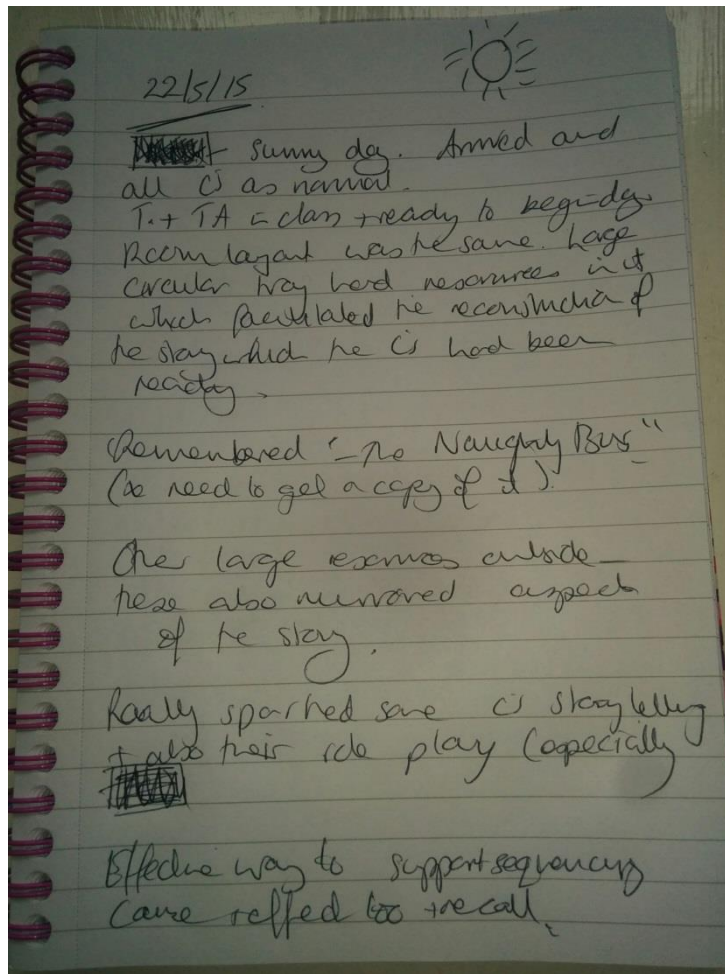 22/5/15
- Sunny day. Arrived and
all c's as normal.
T. + TA in class + ready to begin day.
Room layout was the same. Large
circular tray had resources in it
which facilitated the reconstruction of
the story which the c's had been
reading.
Remembered "The Naughty Bus"
(need to get a copy of it).
Other large resources outside -
these also mirrored aspects
of the story.
Really sparked some c's storytelling
+ also their role play (especially
Effective way to support sequencing
+ recall.